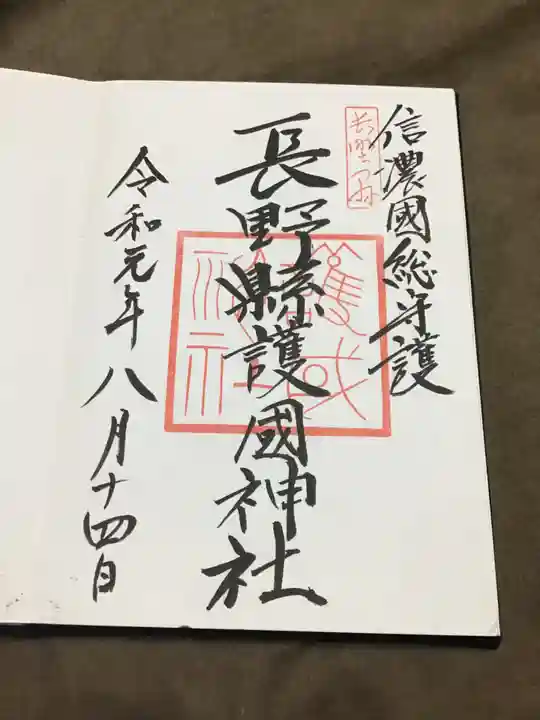 信濃國総守護
長野縣護國神社
令和元年八月十四日